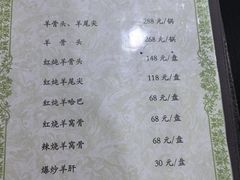 羊骨头、羊尾尖 288 元/锅
羊 骨 头 268 元/锅
红炖羊骨头 148 元/盘
红炖羊尾尖 118 元/盘
红炖羊哈巴 68 元/盘
红烧羊窝骨 68 元/盘
辣烧羊窝骨 68 元/盘
爆炒羊肝 30 元/盘